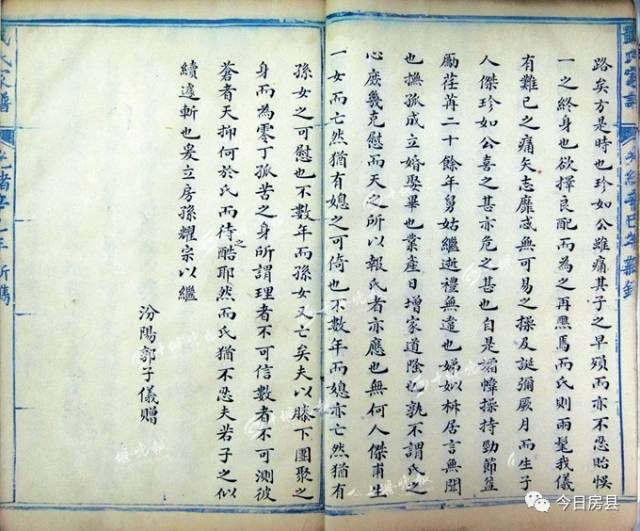 氏家譜
路矣方是時也珍如公雖痛其子之早殞而亦不忍貽悞
一之終身也欲擇良配而為之再醮焉而氏則兩髦我儀
有難已之痛矢志靡忒無可易之操及誕彌厥月而生子
人傑珍如公喜之甚亦危之甚也自是孀幃操持勁節益
勵荏苒二十餘年舅姑繼逝禮無違也娣姒柝居言無間
也撫孤成立婚娶畢也業產日增家道隆也孰不謂氏之
心庶幾克慰而天之所以報氏者亦應也無何人傑甫生
一女而亡然猶有媳之可倚也不數年而媳亦亡然猶有
孫女之可慰也不數年而孫女又亡矣夫以膝下團聚之
身而為零丁孤苦之身所謂理者不可信數者不可測彼
蒼者天抑何於氏而待之酷耶然而氏猶不忍夫若子之似
續遽斬也爰立房孫耀宗以繼
汾陽郭子儀贈
氏家譜
光緒 年 新鐫
今日房县